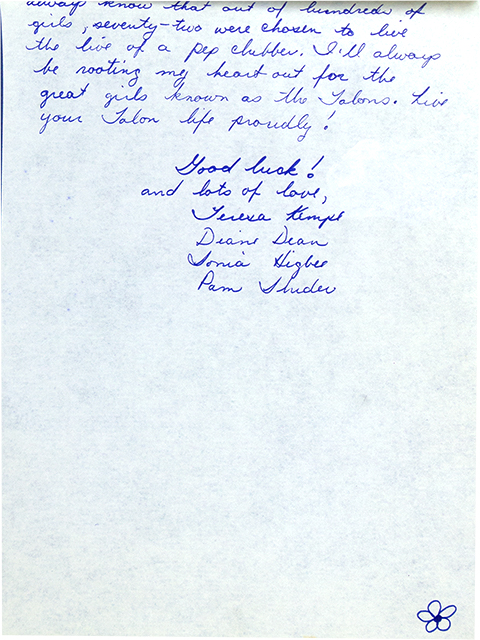 always know that out of hundreds of
girls, seventy-two were chosen to live
the live of a pep clubber. I'll always
be rooting my heart out for the
great girls known as the Talons. Live
your Talon life proudly!
Good luck!
and lots of love,
Teresa Kempe
Diane Dean
Sonia Higbee
Pam Studer